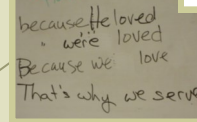 because He loved
" we're loved
Because we love
That's why we serve